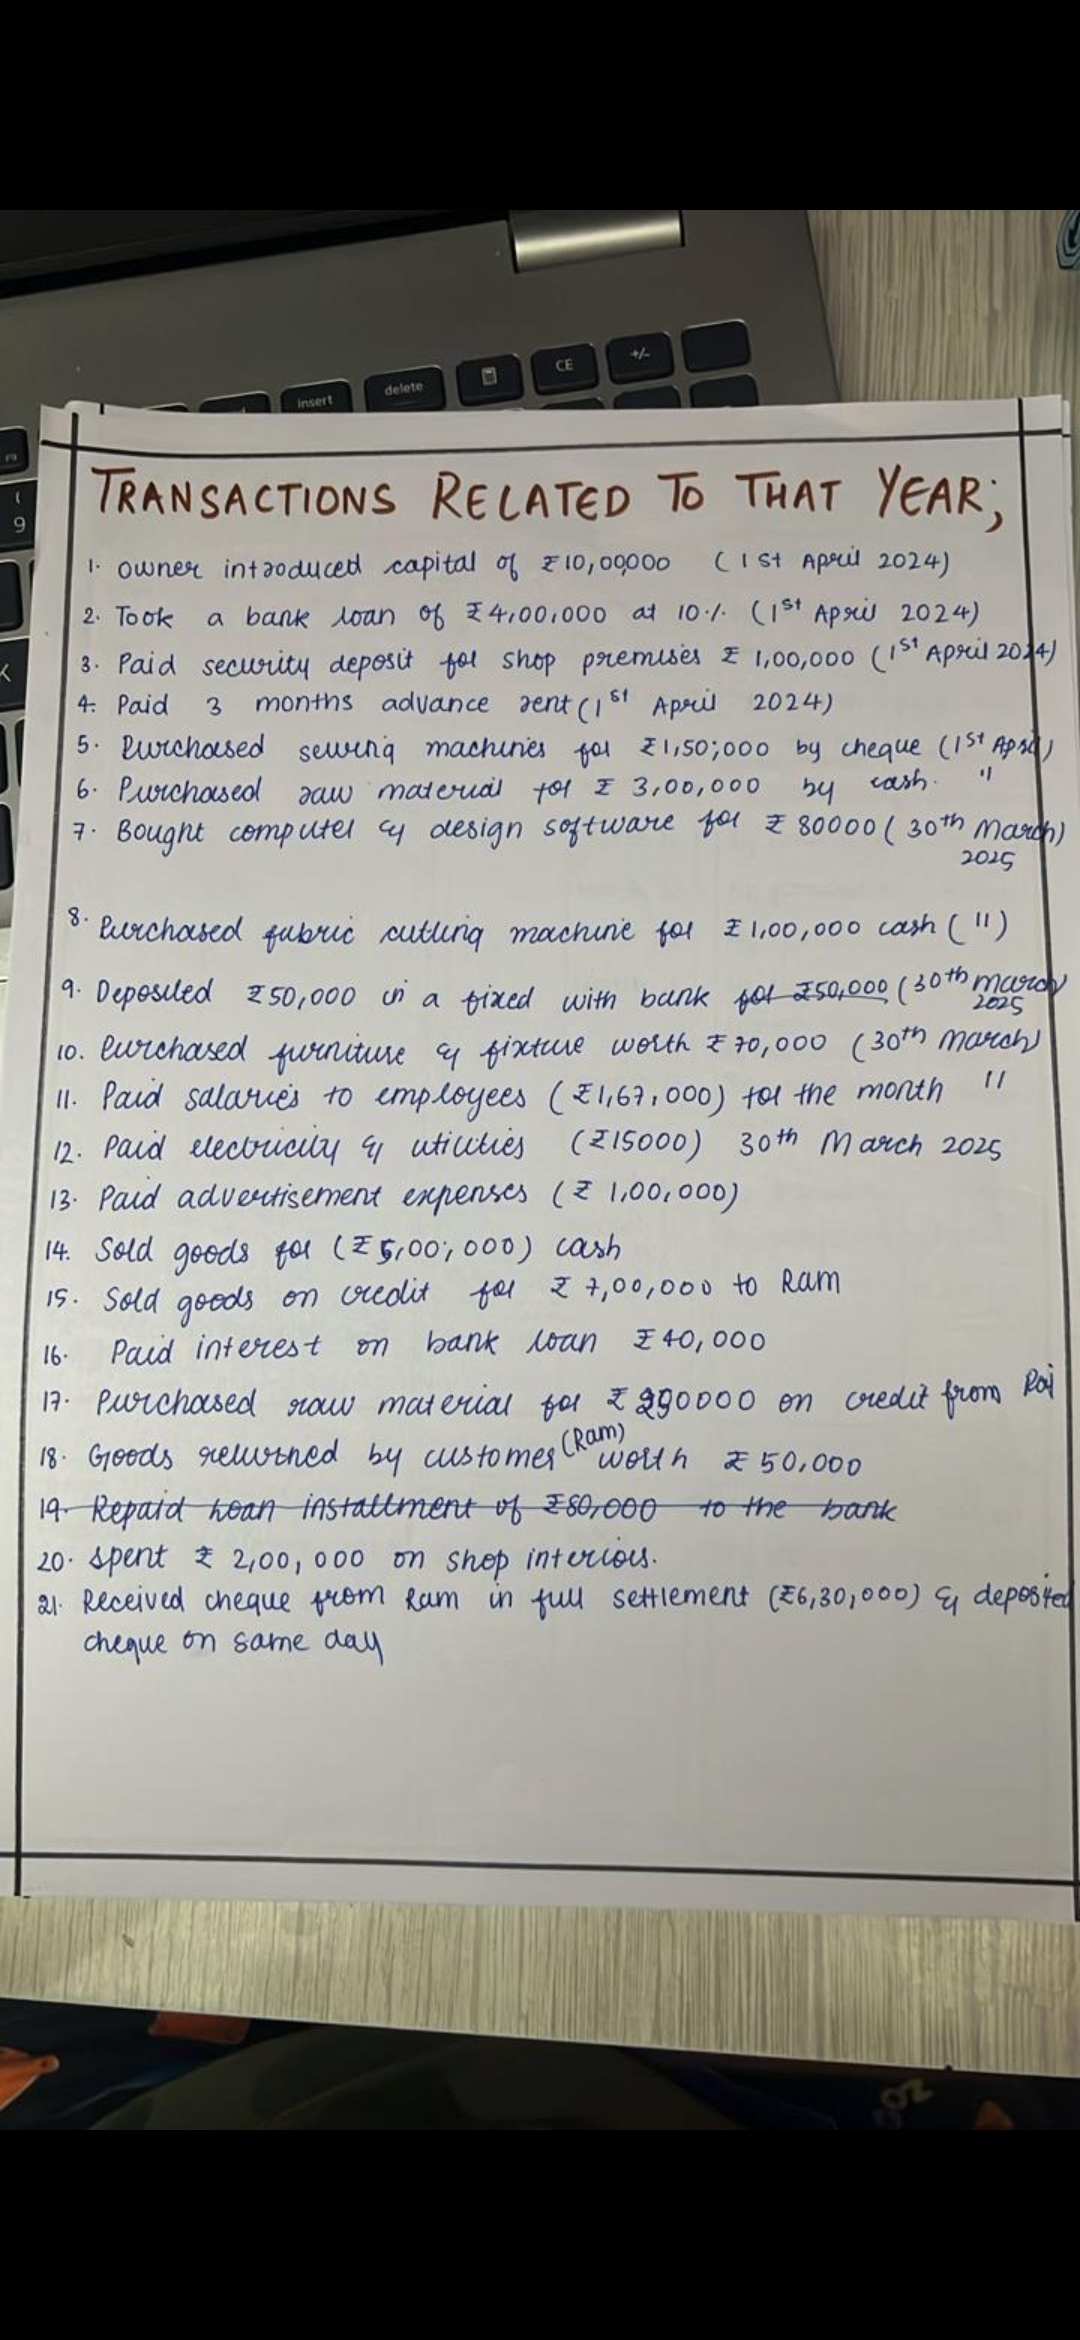 TRANSACTIONS RELATED TO THAT YEAR;
1. owner introduced capital of ₹10,00,000 (1st April 2024)
2. Took a bank loan of ₹4,00,000 at 10% (1st April 2024)
3. Paid security deposit for shop premises ₹ 1,00,000 (1st April 2024)
4. Paid 3 months advance rent (1st April 2024)
5. Purchased sewing machines for ₹1,50,000 by cheque (1st April)
6. Purchased raw material for ₹ 3,00,000 by cash. "
7. Bought computer & design software for ₹ 80000 (30th March)
2025
8. Purchased fabric cutting machine for ₹1,00,000 cash (")
9. Deposited ₹50,000 in a fixed with bank for ₹50,000 (30th march
2025
10. Purchased furniture & fixture worth ₹ 70,000 (30th march)
11. Paid salaries to employees (₹1,67,000) for the month "
12. Paid electricity & utilities (₹15000) 30th March 2025
13. Paid advertisement expenses (₹ 1,00,000)
14. Sold goods for (₹5,00,000) cash
15. Sold goods on credit for ₹ 7,00,000 to Ram
16. Paid interest on bank loan ₹40,000
17. Purchased raw material for ₹ on credit from
18. Goods returned by customer (Ram) worth ₹ 50,000
19. Repaid loan installment of ₹80,000 to the bank
20. spent ₹ 2,00,000 on shop interiors.
21. Received cheque from Ram in full settlement (₹6,30,000) & deposited
cheque on same day
insert
delete
CE
+/-
F9
(
9
K